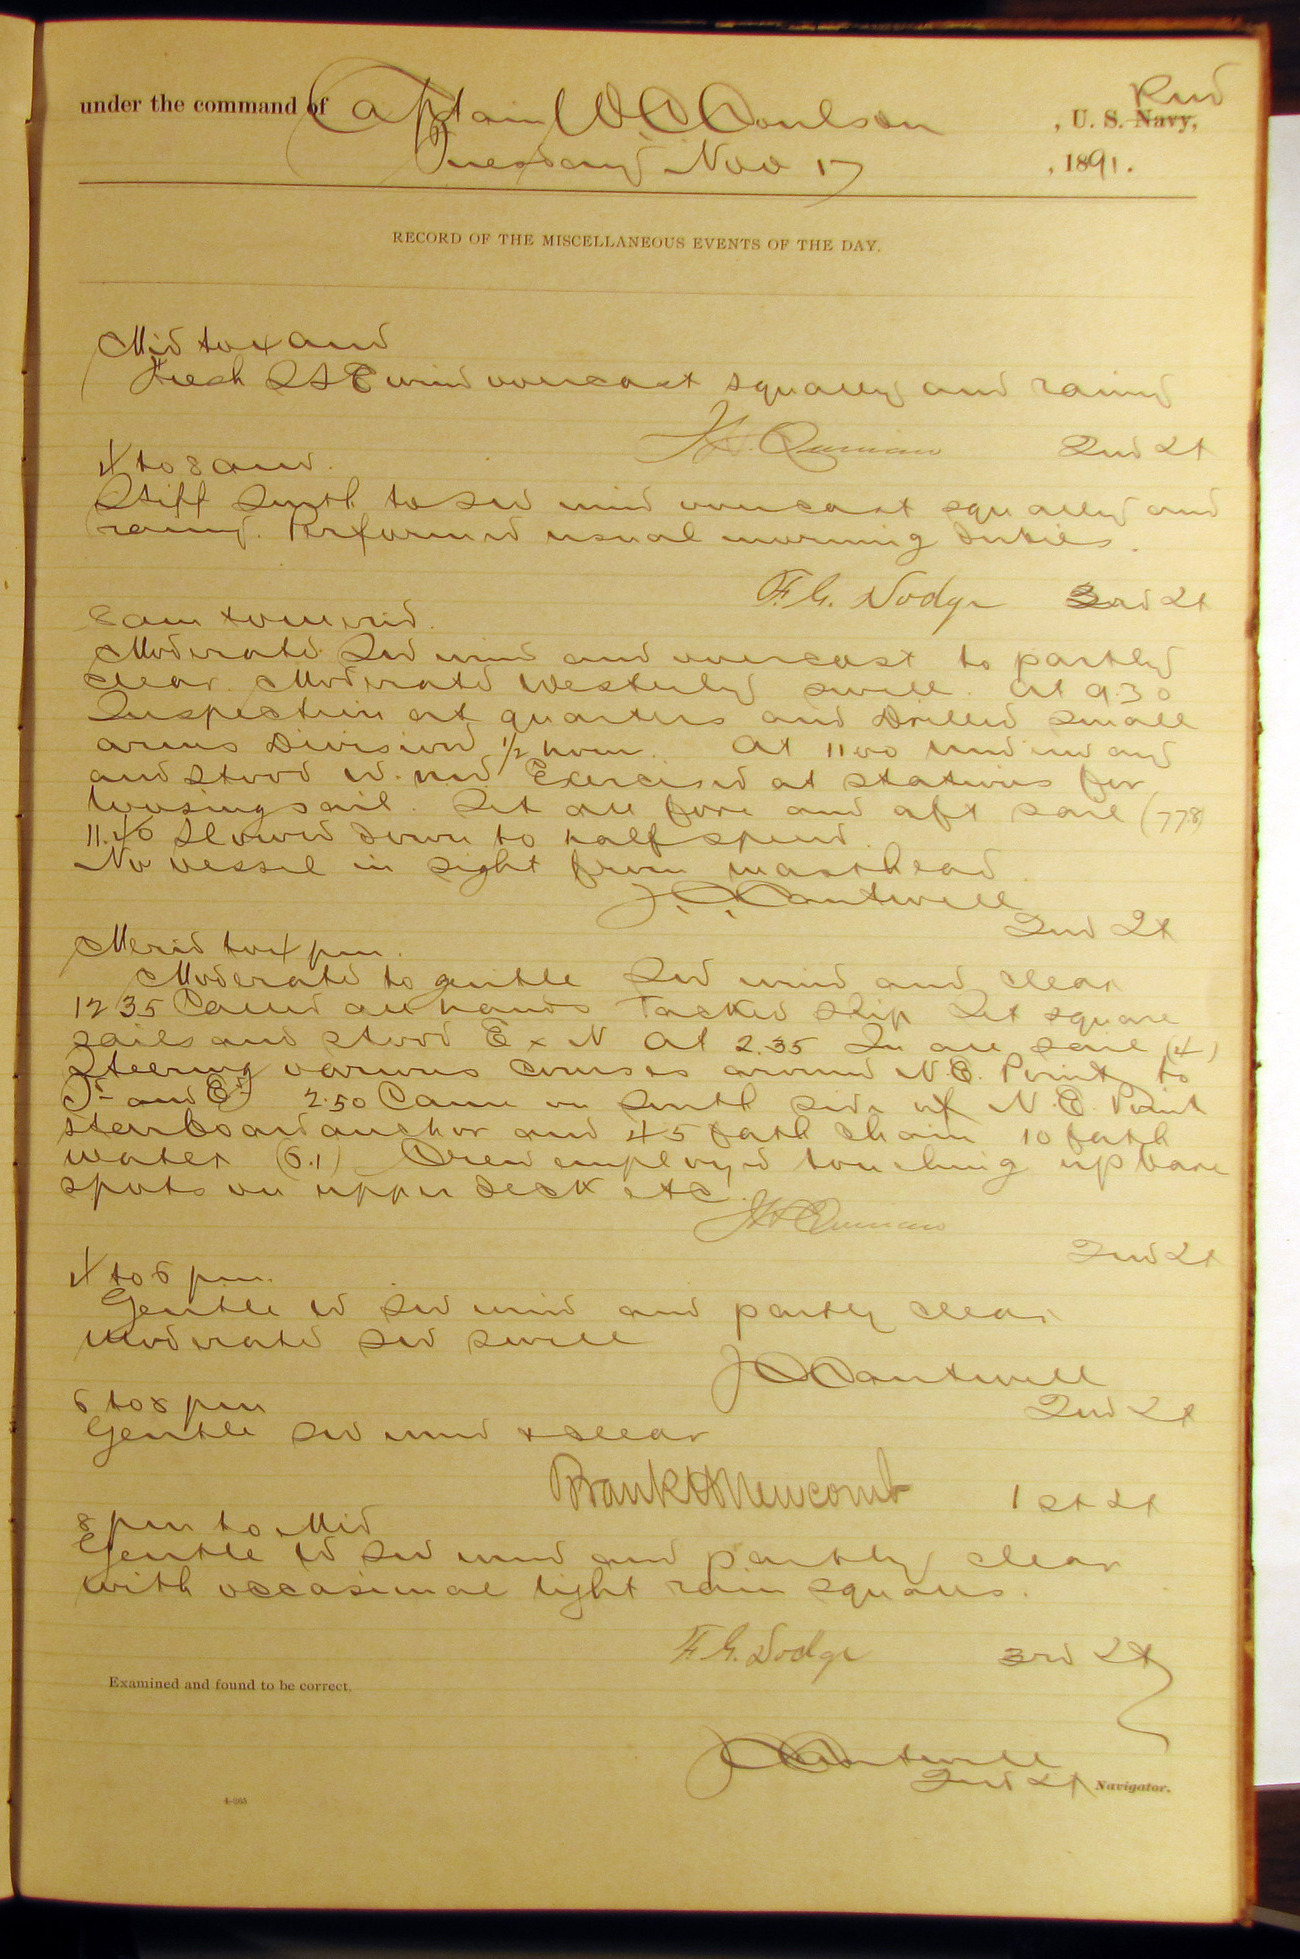 under the command of Captain W. C. Coulson, U. S. Navy, Rev
Tuesday Nov 17, 1891.
RECORD OF THE MISCELLANEOUS EVENTS OF THE DAY.
Mid to 4 am
Fresh SSE wind overcast squally and rainy
2nd Lt
4 to 8 am.
Stiff South to SW wind overcast squally and
rainy. Performed usual morning duties.
F. G. Dodge 3rd Lt
8 am to merid.
Moderate SW wind and overcast to partly
clear. Moderate Westerly swell. At 9.30
Inspection at quarters and drilled small
arms Division 1/2 hour. At 11 00 underway
and stood W. Exercised at stations for
loosing sail. Set all fore and aft sail (778)
11.40 Slowed down to half speed.
No vessel in sight from masthead.
J. C. Cantwell
2nd Lt
Merid to 4 pm.
Moderate to gentle SW wind and clear
12 35 Called all hands Tacked ship Set square
sails and stood E x N At 2.35 In all sail (4)
Steering various courses around N.E. Point to
Sd and Ed 2.50 Came on South side of N.E. Point
starboard anchor and 45 fath chain 10 fath
water (6.1) Crew employed touching up bare
spots on upper deck etc.
2nd Lt
4 to 6 pm.
Gentle W SW wind and partly clear
Moderate SW swell
J C Cantwell
2nd Lt
6 to 8 pm
Gentle SW wind & clear
Frank H Newcomb 1st Lt
8 pm to Mid
Gentle W SW wind and partly clear
with occasional light rain squalls.
F. G. Dodge 3rd Lt
Examined and found to be correct.
J C Cantwell
2nd Lt Navigator.
4-265